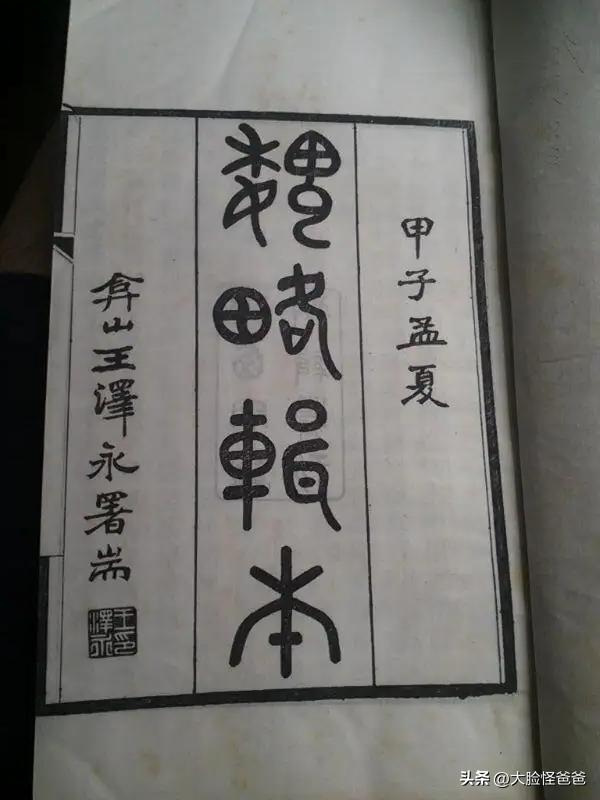 甲子孟夏
魏略輯本
弇山王澤永署耑
王印澤永
头条 @大脸怪爸爸